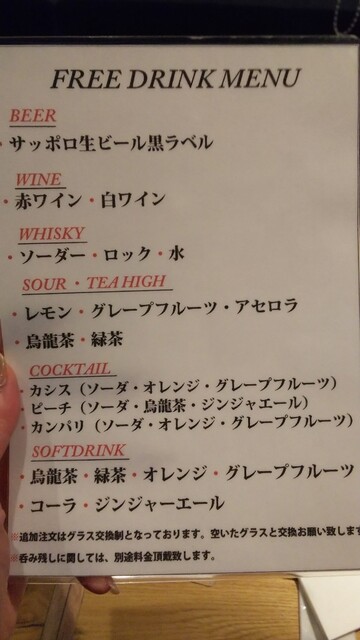 FREE DRINK MENU
BEER
・サッポロ生ビール黒ラベル
WINE
・赤ワイン・白ワイン
WHISKY
・ソーダー・ロック・水
SOUR・TEA HIGH
・レモン・グレープフルーツ・アセロラ
・烏龍茶・緑茶
COCKTAIL
・カシス（ソーダ・オレンジ・グレープフルーツ）
・ピーチ（ソーダ・烏龍茶・ジンジャエール）
・カンパリ（ソーダ・オレンジ・グレープフルーツ）
SOFTDRINK
・烏龍茶・緑茶・オレンジ・グレープフルーツ
・コーラ・ジンジャーエール
※追加注文はグラス交換制となっております。空いたグラスと交換お願い致します
※呑み残しに関しては、別途料金頂戴致します。